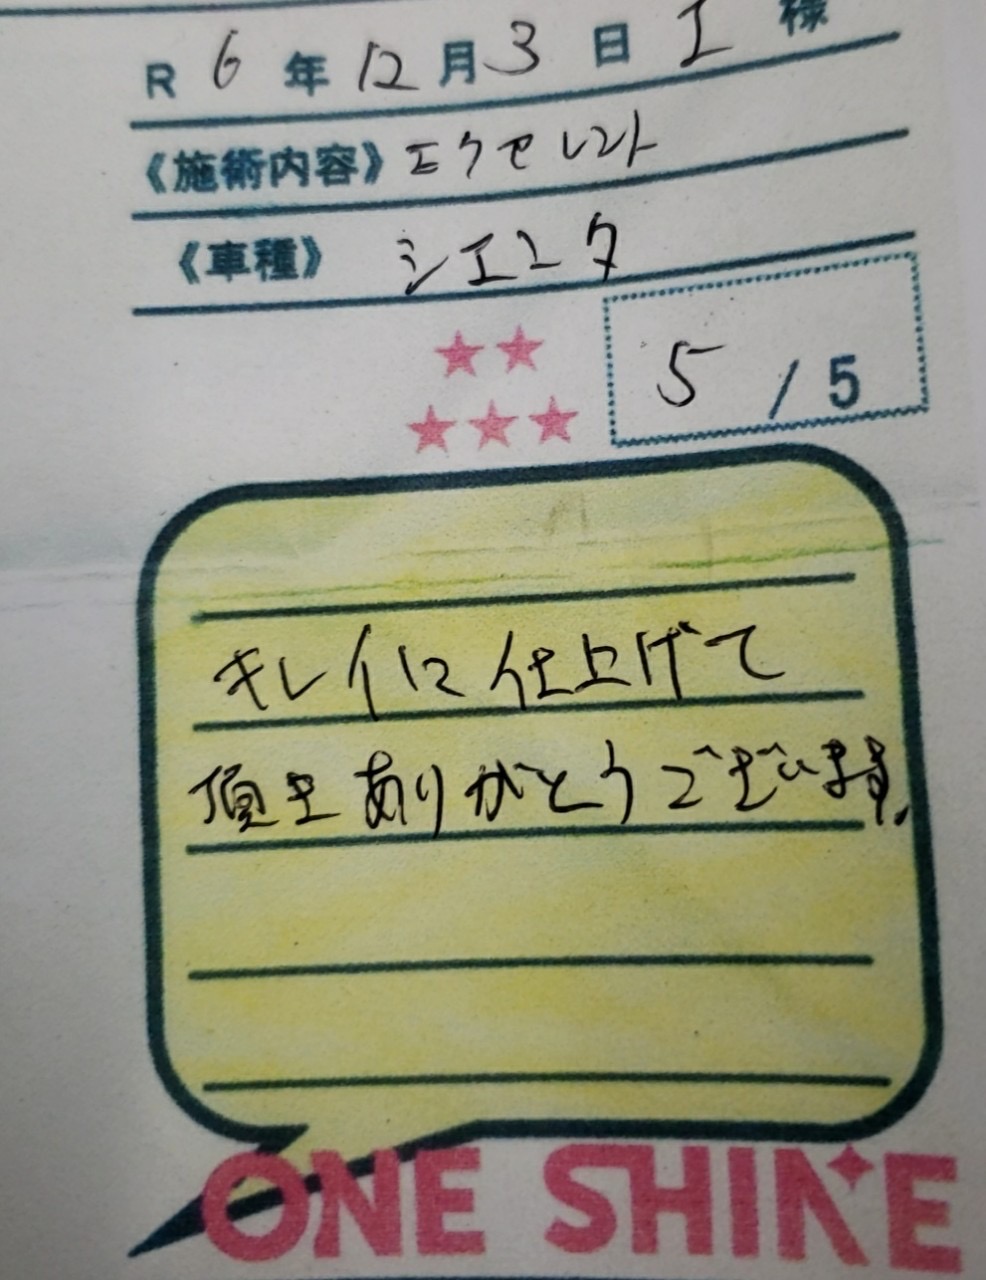 R 6 年 12 月 3 日 I 様
《施術内容》 エクセレント
《車種》 シエンタ
5 / 5
キレイに仕上げて
頂きありがとうございます。
ONE SHINE